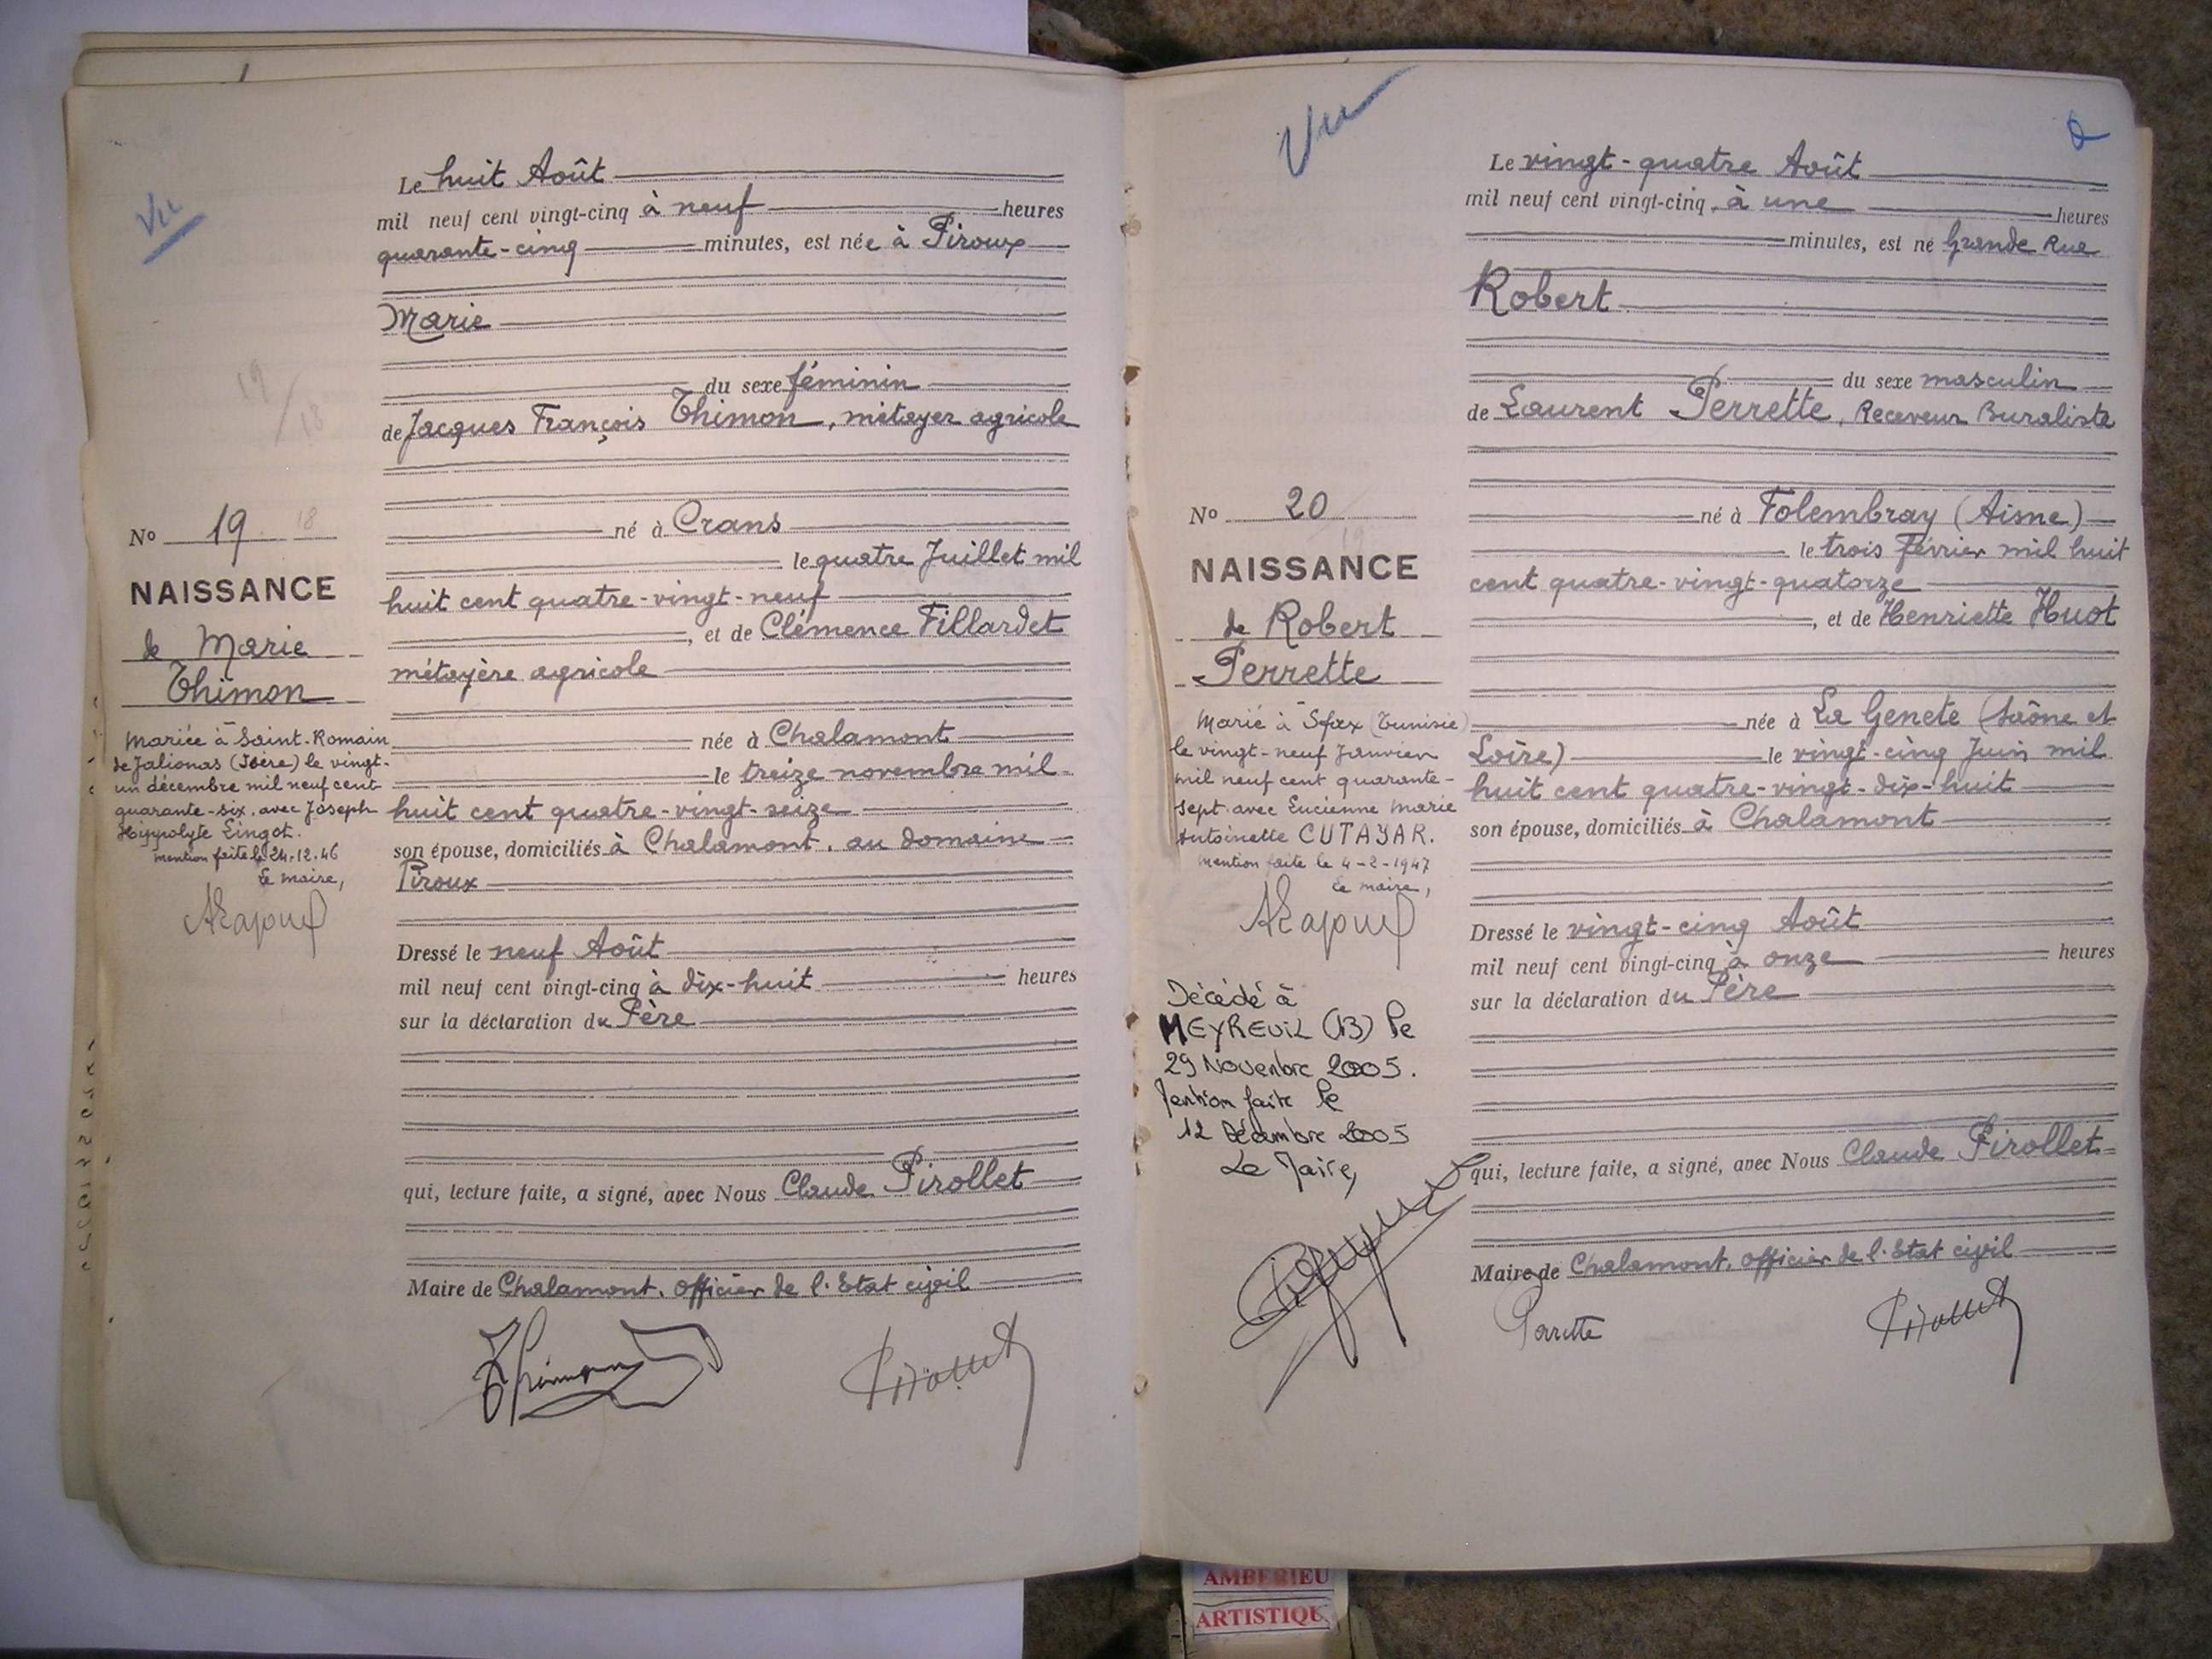 Vu
Le huit Août
mil neuf cent vingt-cinq à neuf heures
quarante-cinq minutes, est née à Piroux
Marie
19
/ 18
du sexe féminin
de Jacques François Thimon, métayer agricole
No 19 18
NAISSANCE
de Marie
Thimon
Mariée à Saint-Romain
de Jalionas (Isère) le vingt-
un décembre mil neuf cent
quarante-six, avec Joseph
Hyppolyte Lingot.
mention faite le 24.12.46
Le maire,
né à Crans
le quatre Juillet mil
huit cent quatre-vingt-neuf
, et de Clémence Fillardet
métayère agricole
née à Chalamont
le treize novembre mil
huit cent quatre-vingt-seize
son épouse, domiciliés à Chalamont, au domaine
Piroux
Dressé le neuf Août
mil neuf cent vingt-cinq à dix-huit heures
sur la déclaration du Père
qui, lecture faite, a signé, avec Nous Claude Pirollet
Maire de Chalamont, officier de l'Etat civil
Thimon
Pirollet
Vu
Le vingt-quatre Août
mil neuf cent vingt-cinq, à une heures
minutes, est né Grande Rue
Robert
du sexe masculin
de Laurent Perrette, Receveur Buraliste
No 20
19
NAISSANCE
de Robert
Perrette
Marié à Sfax (Tunisie)
le vingt-neuf Janvier
mil neuf cent quarante-
sept avec Lucienne Marie
Antoinette CUTAJAR.
mention faite le 4-2-1947
Le maire,
Décédé à
MEYREUIL (13) le
29 Novembre 2005.
Mention faite le
12 Décembre 2005
Le Maire,
né à Folembray (Aisne)
le trois février mil huit
cent quatre-vingt-quatorze
, et de Henriette Huot
née à La Genete (Saône et
Loire) le vingt-cinq Juin mil
huit cent quatre-vingt-dix-huit
son épouse, domiciliés à Chalamont
Dressé le vingt-cinq Août
mil neuf cent vingt-cinq à onze heures
sur la déclaration du Père
qui, lecture faite, a signé, avec Nous Claude Pirollet
Maire de Chalamont, officier de l'Etat civil
Perrette
Pirollet
AMBERIEU
ARTISTIQU